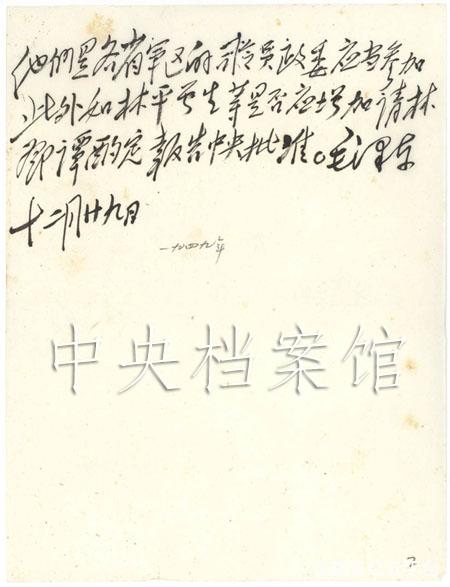 他们是各省军区的司令员政委应当参加
此外如林平等是否应增加请林
邓谭酌定报告中央批准。毛泽东
十二月廿九日
一九四九年
中央档案馆